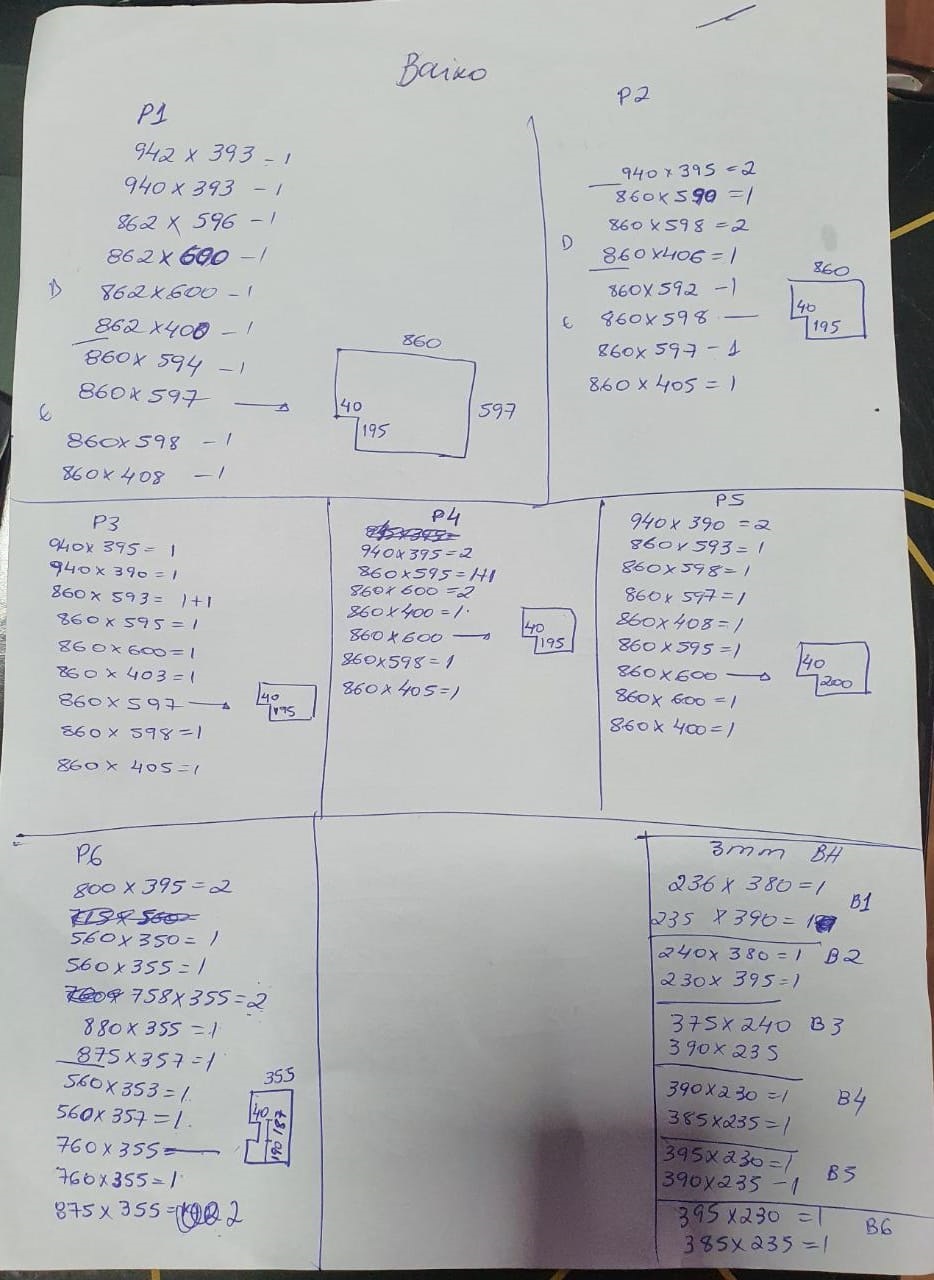 Baixo
P1
942 x 393 - 1
940 x 393 - 1
862 x 596 - 1
862 x 600 - 1
D 862 x 600 - 1
862 x 400 - 1
860 x 594 - 1
860 x 597
E
860 x 598 - 1
860 x 408 - 1
860
597
40
195
P2
940 x 395 = 2
860 x 590 = 1
860 x 598 = 2
D 860 x 406 = 1
860 x 592 - 1
E 860 x 598
860 x 597 - 1
860 x 405 = 1
860
40
195
P3
940 x 395 = 1
940 x 390 = 1
860 x 593 = 1+1
860 x 595 = 1
860 x 600 = 1
860 x 403 = 1
860 x 597
860 x 598 = 1
860 x 405 = 1
40
195
P4
940 x 395 = 2
860 x 595 = 1+1
860 x 600 = 2
860 x 400 = 1
860 x 600
860 x 598 = 1
860 x 405 = 1
40
195
P5
940 x 390 = 2
860 x 593 = 1
860 x 598 = 1
860 x 597 = 1
860 x 408 = 1
860 x 595 = 1
860 x 600
860 x 600 = 1
860 x 400 = 1
40
200
P6
800 x 395 = 2
715 x 560 =
560 x 350 = 1
560 x 355 = 1
758 x 355 = 2
880 x 355 = 1
875 x 357 = 1
560 x 353 = 1
560 x 357 = 1
760 x 355
760 x 355 = 1
875 x 355 = 2
355
40
187
190
3mm BH
236 x 380 = 1
235 x 390 = 1
B1
240 x 380 = 1 B2
230 x 395 = 1
375 x 240 B3
390 x 235
390 x 230 = 1
B4
385 x 235 = 1
395 x 230 = 1
390 x 235 - 1
B5
395 x 230 = 1
B6
385 x 235 = 1